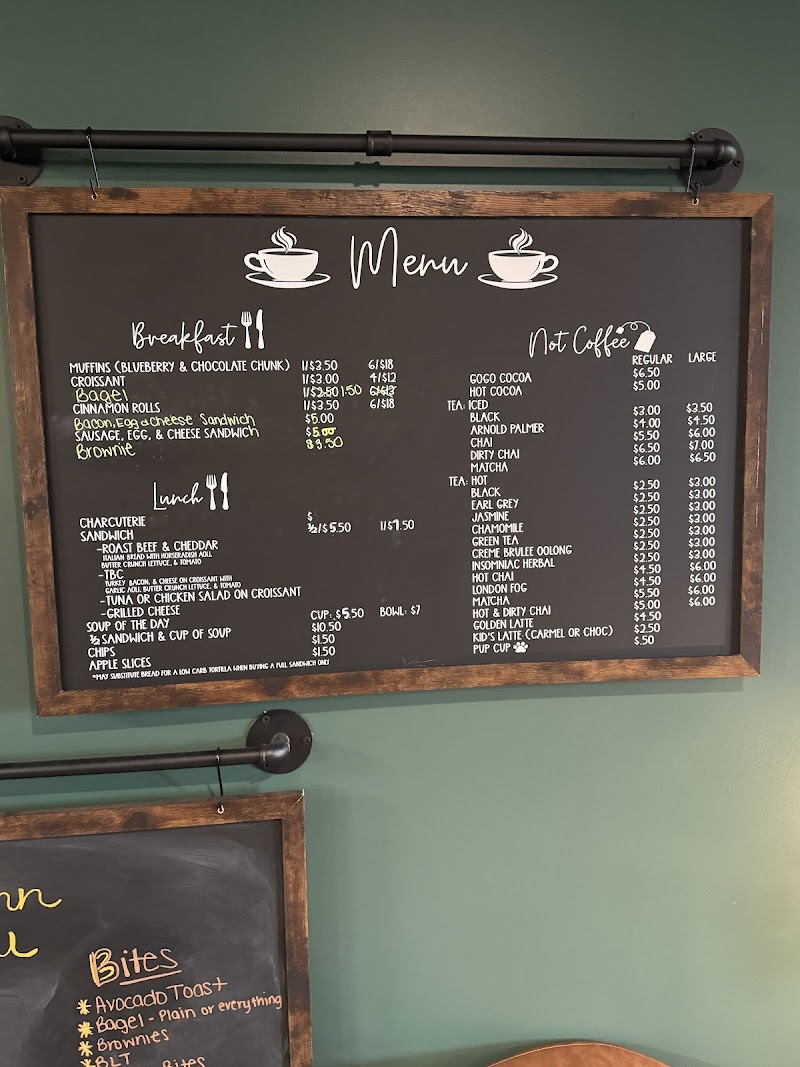 Menu
Breakfast
MUFFINS (BLUEBERRY & CHOCOLATE CHUNK) 1/$3.50 6/$18
CROISSANT 1/$3.00 4/$12
Bagel 1/$2.50 1.50 6/$13
CINNAMON ROLLS 1/$3.50 6/$18
Bacon, Egg & Cheese Sandwich $5.00
SAUSAGE, EGG, & CHEESE SANDWICH $5.00
Brownie $3.50
Lunch
CHARCUTERIE $
SANDWICH ½/$5.50 1/$7.50
-ROAST BEEF & CHEDDAR
ITALIAN BREAD WITH HORSERADISH AOLI,
BUTTER CRUNCH LETTUCE, & TOMATO
-TBC
TURKEY, BACON, & CHEESE ON CROISSANT WITH
GARLIC AOLI, BUTTER CRUNCH LETTUCE, & TOMATO
-TUNA OR CHICKEN SALAD ON CROISSANT
-GRILLED CHEESE
SOUP OF THE DAY CUP: $5.50 BOWL: $7
½ SANDWICH & CUP OF SOUP $10.50
CHIPS $1.50
APPLE SLICES $1.50
*MAY SUBSTITUTE BREAD FOR A LOW CARB TORTILLA WHEN BUYING A FULL SANDWICH ONLY
Not Coffee
REGULAR LARGE
GOGO COCOA $6.50
HOT COCOA $5.00
TEA: ICED
BLACK $3.00 $3.50
ARNOLD PALMER $4.00 $4.50
CHAI $5.50 $6.00
DIRTY CHAI $6.50 $7.00
MATCHA $6.00 $6.50
TEA: HOT
BLACK $2.50 $3.00
EARL GREY $2.50 $3.00
JASMINE $2.50 $3.00
CHAMOMILE $2.50 $3.00
GREEN TEA $2.50 $3.00
CREME BRULEE OOLONG $2.50 $3.00
INSOMNIAC HERBAL $2.50 $3.00
HOT CHAI $4.50 $6.00
LONDON FOG $4.50 $6.00
MATCHA $5.50 $6.00
HOT & DIRTY CHAI $5.00 $6.00
GOLDEN LATTE $4.50
KID'S LATTE (CARMEL OR CHOC) $2.50
PUP CUP $.50
Bites
* Avocado Toast
* Bagel - Plain or everything
* Brownies
* BLT
Bites